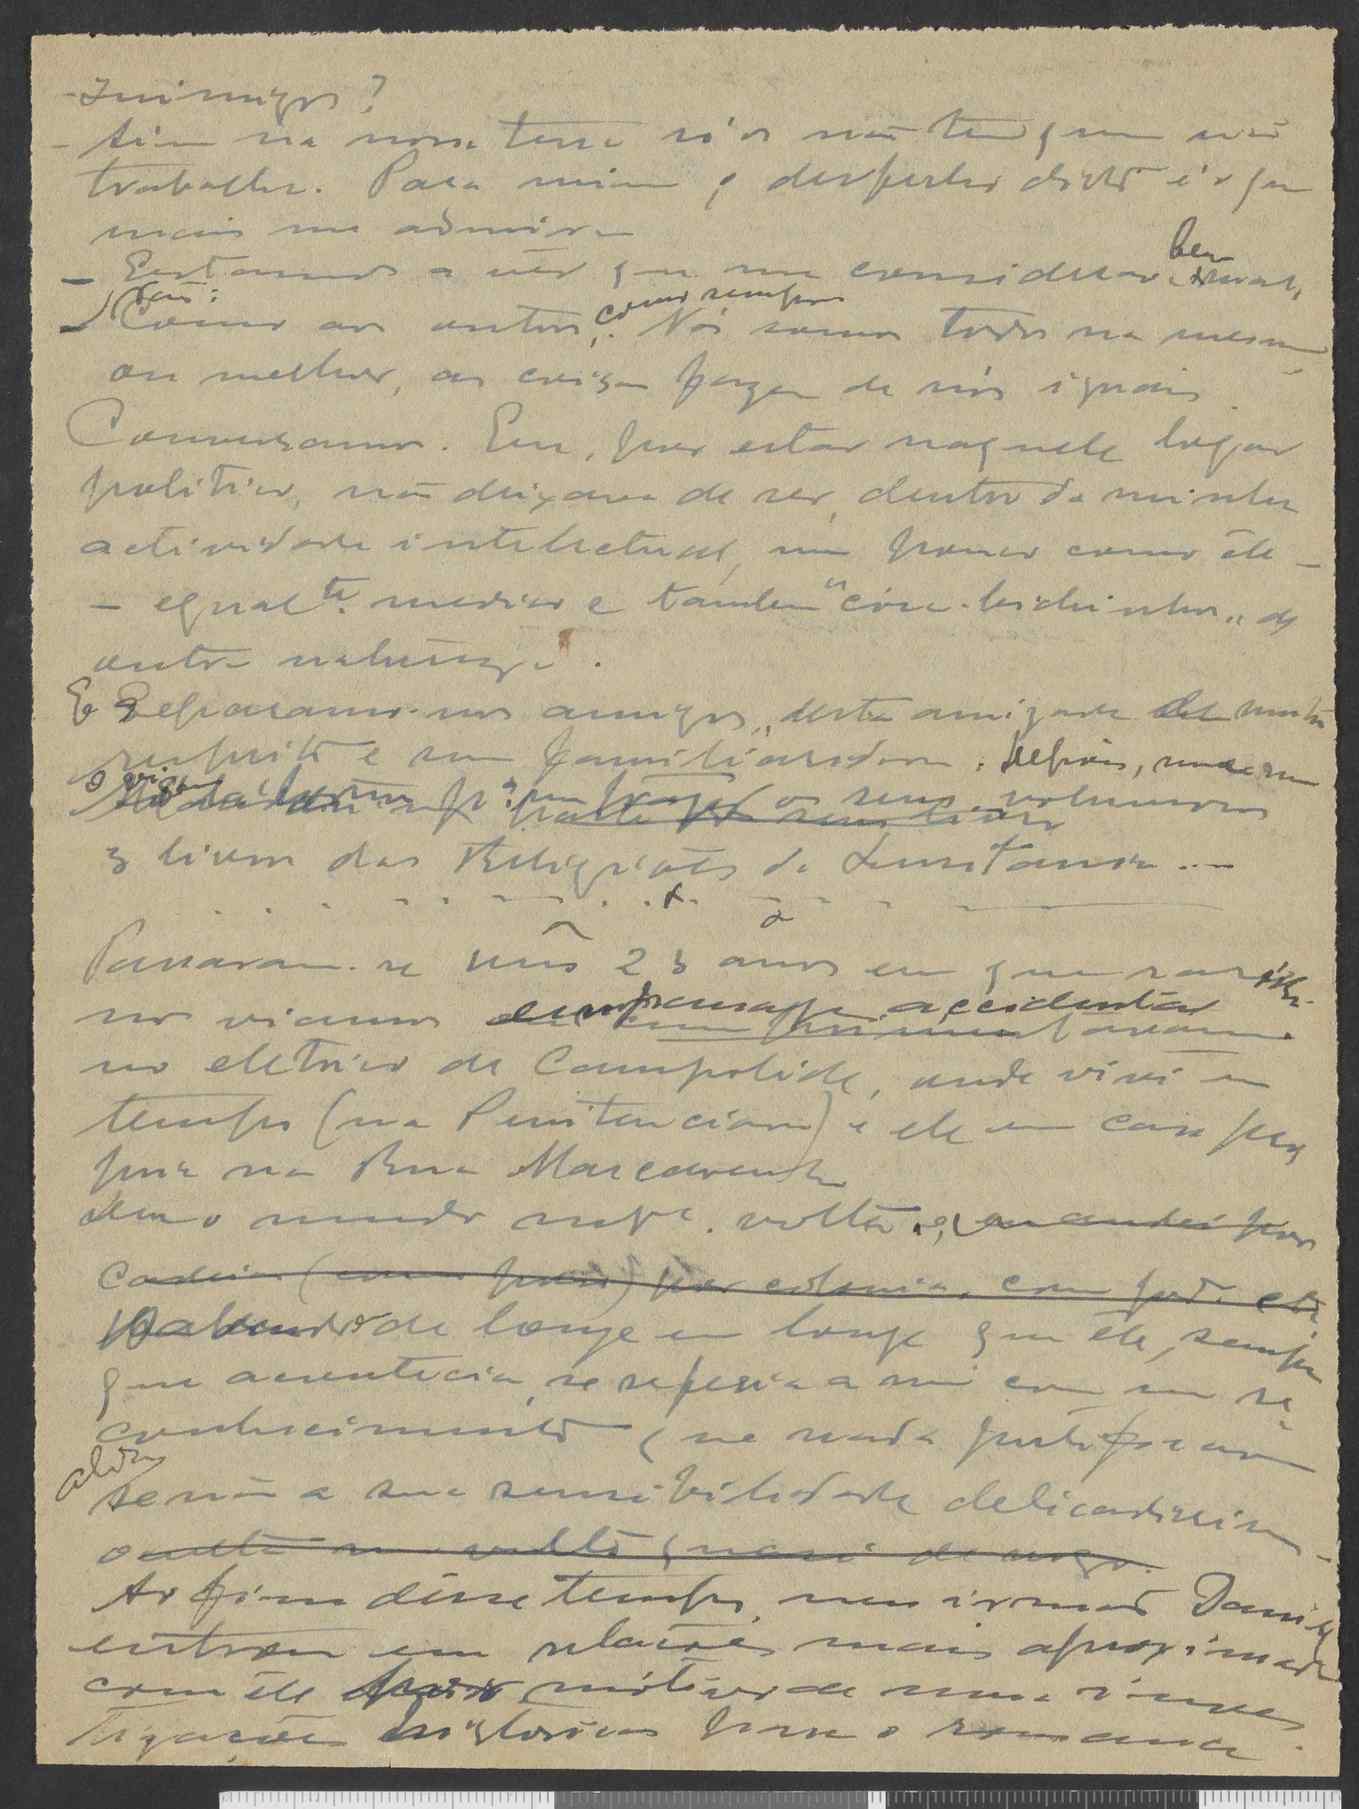 - Inimigos?
- Sim na nossa terra só os não tem quem não
trabalha. Para mim o despertar disto é o que
mais me admira
- Estamos a vêr que me considera bem
- Como aos outros, como sempre. Nós somos todos na mesma
ou melhor, as coisas fazem de nós iguais.
Conversamos. Eu, por estar naquele logar
politico, não deixava de ser, dentro da minha
actividade intelectual, um pouco como êle -
- egualte. medico e tambem de
outra natureza.
E separamo-nos amigos, desta amizade de muito
respeito e sem familiaridade. Depois, mandou-me
os seus volumosos
3 livros das Religiões da Lusitania ...
Passaram-se uns 23 anos em que raras vezes
nos viamos em passagem accidental
no eletrico de Campolide, onde vivi um
tempo (na Penitenciaria) e ele em casa pro-
pria na Rua
deu o mundo muita volta, e eu andei por
cadeia por colonia, com
sabendo de longe em longe que êle, sempre
que acontecia, se referia a mim com um re-
conhecimento que nada justificava
aliás
senão a sua sensibilidade delicadissima
oculta
Ao fim dêsse tempo, meu irmão
entrou em relações mais aproximadas
com êle por motivo de umas inves-
tigações historicas para o romance